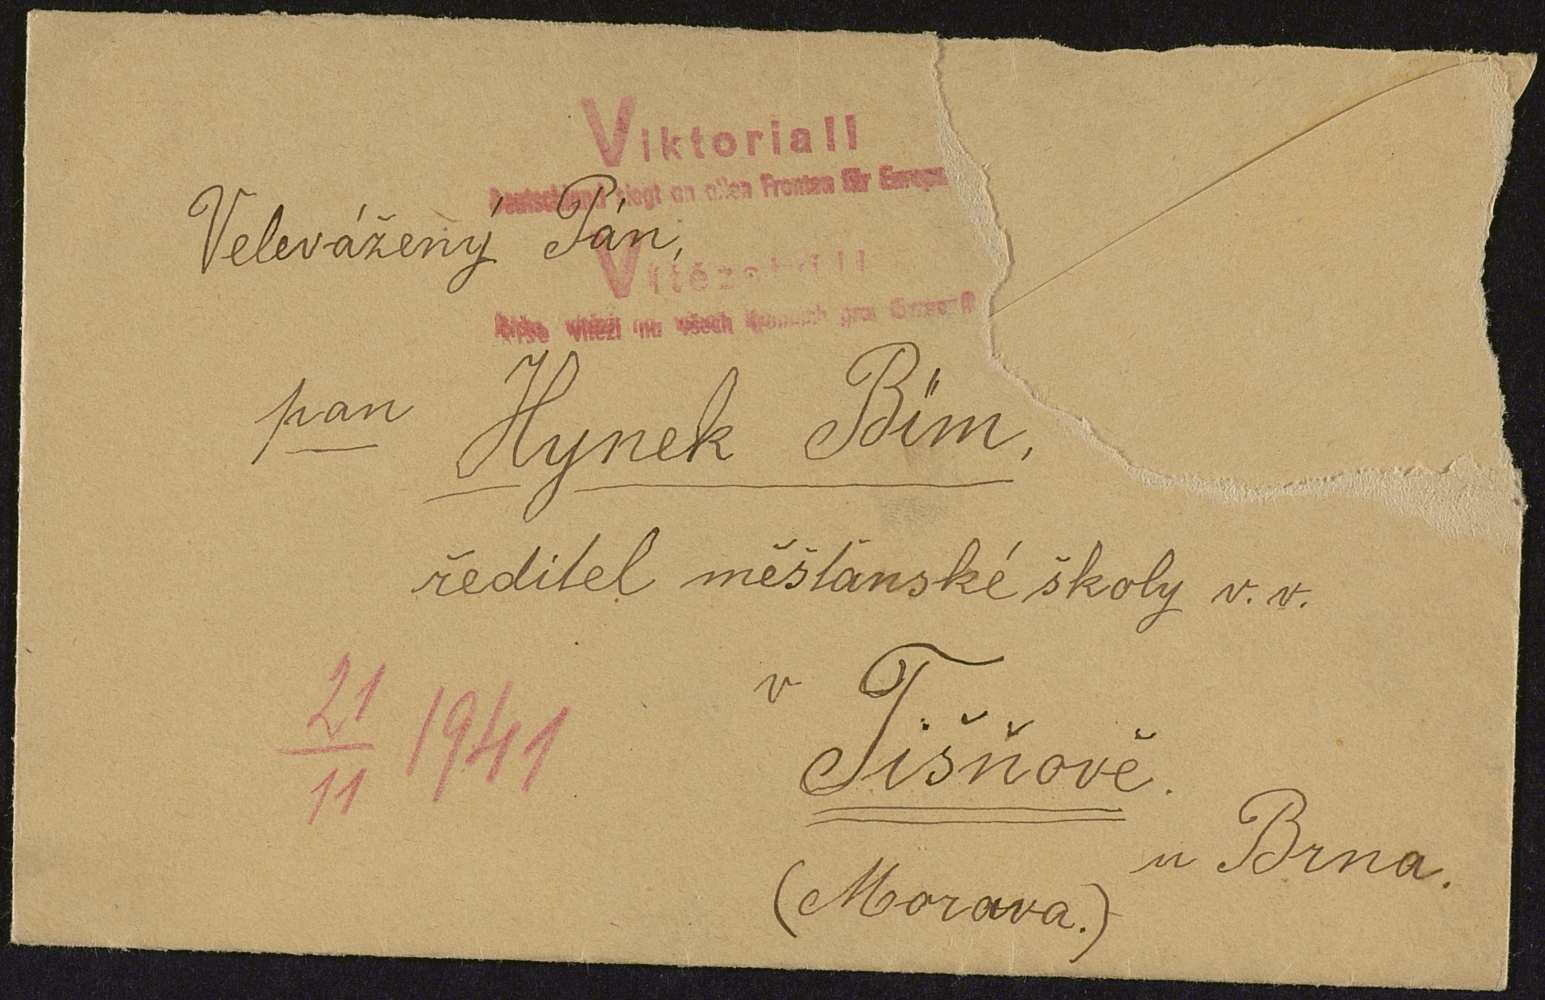 Viktoria!!
Deutschland siegt an allen Fronten für Europa
Velevážený Pán,
Vítězství!!
Říše vítězí na všech frontách pro
pan Hynek Bím,
ředitel měšťanské školy v. v.
v Tišňově.
21/11 1941
u Brna.
(Morava.)